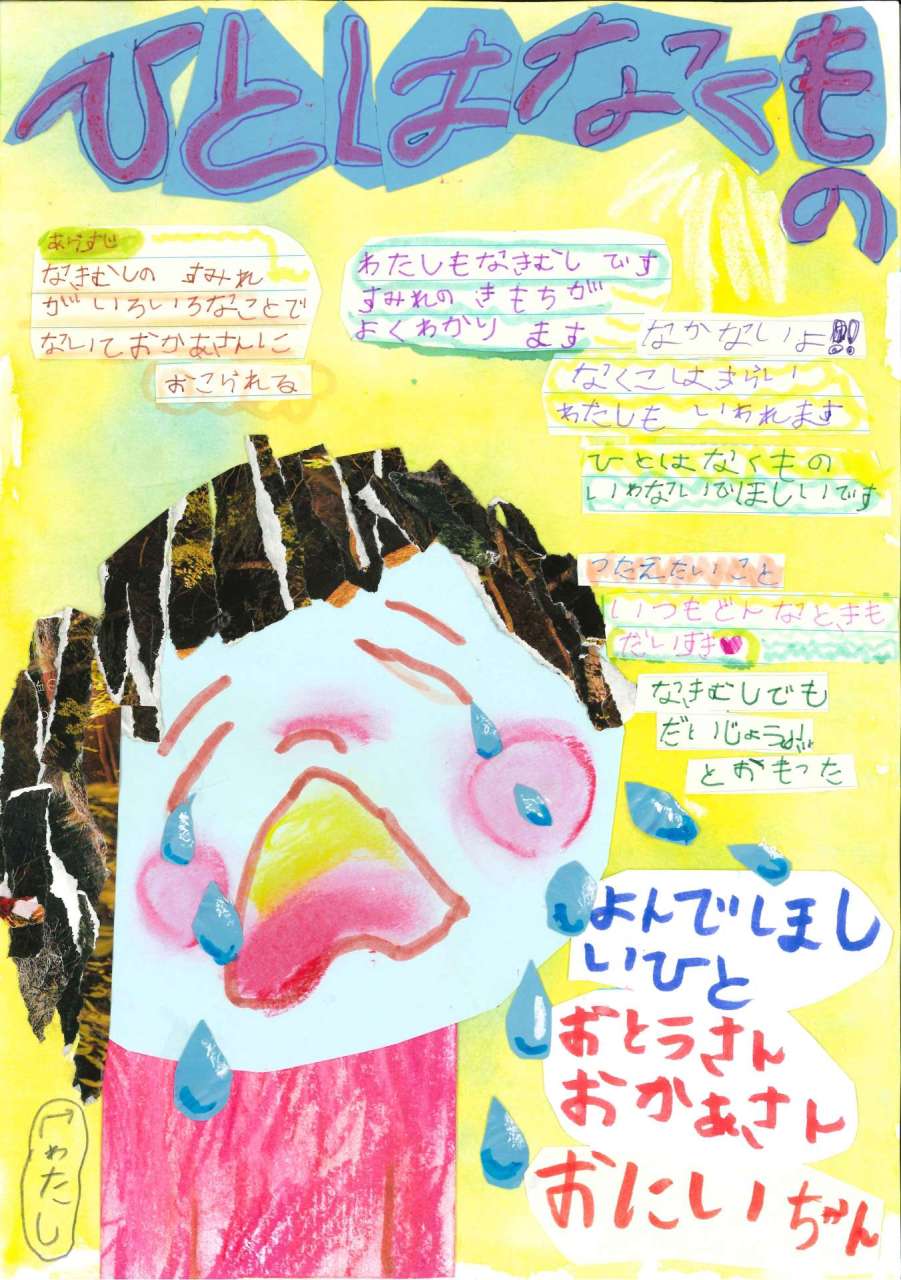 ひとはなくもの
あらすじ
なきむしの すみれ
がいろいろなことで
ないておかあさんに
おこられる
わたしもなきむし です
すみれの きもちが
よくわかり ます
なかないよ!!
なくこはきらい
わたしも いわれます
ひとはなくもの
いわないでほしいです
つたえたいこと
いつもどんなときも
だいすき♥
なきむしでも
だいじょうぶ
とおもった
よんでほし
いひと
おとうさん
おかあさん
おにいちゃん
↑わたし